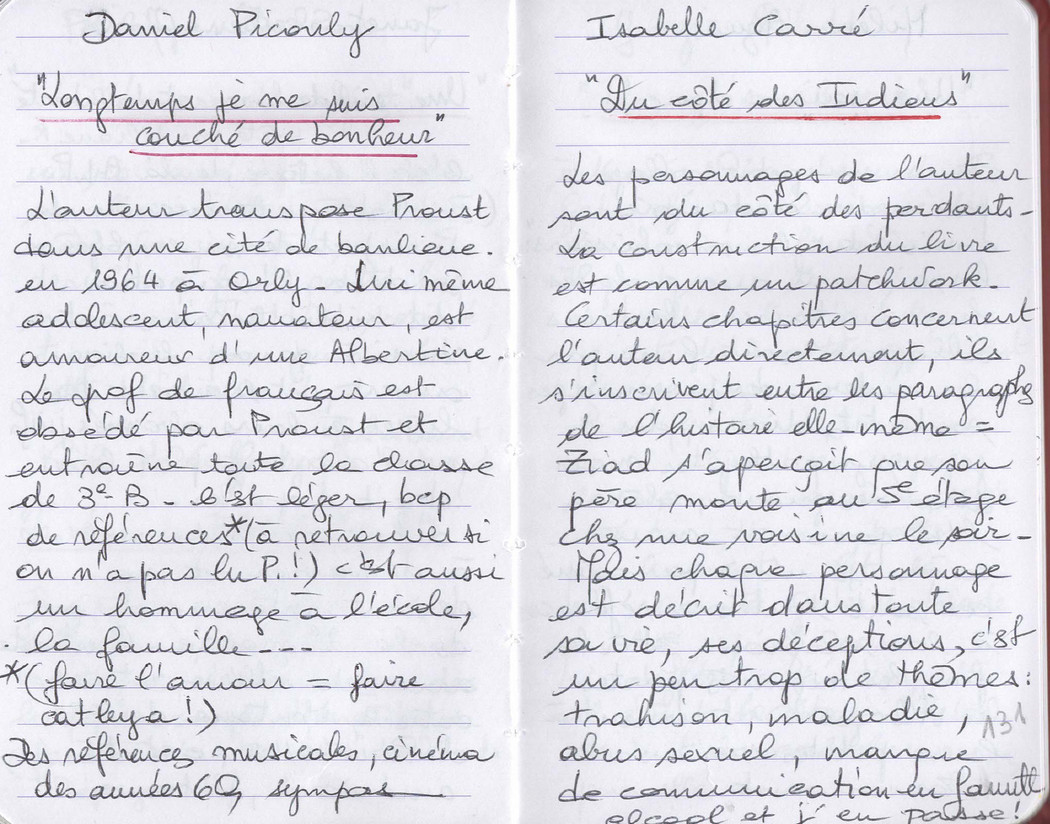 Daniel Picouly
"Longtemps je me suis
couché de bonheur"
L'auteur transpose Proust
dans une cité de banlieue.
en 1964 à Orly - Lui même
adolescent, narrateur, est
amoureux d'une Albertine.
Le prof de français est
obsédé par Proust et
entraîne toute la classe
de 3e B - C'est léger, bcp
de références*(à retrouver si
on n'a pas lu P.!) c'est aussi
un hommage à l'école,
la famille ---
*(faire l'amour = faire
catleya!)
Des références musicales, cinéma
des années 60, sympas
Isabelle Carré
"Du côté des Indiens"
Les personnages de l'auteur
sont du côté des perdants -
La construction du livre
est comme un patchwork -
Certains chapitres concernent
l'auteur directement, ils
s'inscrivent entre les paragraphes
de l'histoire elle même =
Ziad s'aperçoit que son
père monte au 5e étage
chez une voisine le soir -
Mais chaque personnage
est décrit dans toute
sa vie, ses déceptions, c'est
un peu trop de thèmes:
trahison, maladie,
131
abus sexuel, manque
de communication en famille
alcool et j'en passe!